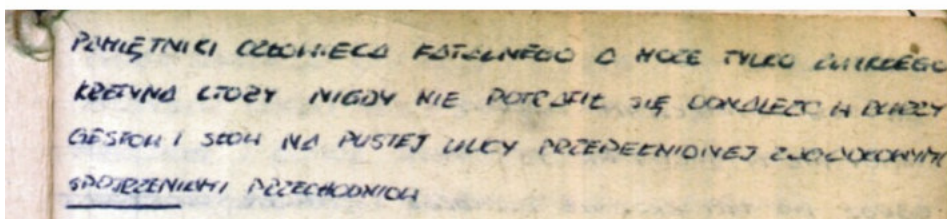 PAMIĘTNIKI CZŁOWIEKA FATALNEGO A MOŻE TYLKO ZWYKŁEGO
KRETYNA KTÓRY NIGDY NIE POTRAFIŁ SIĘ ODNALEŹĆ W BURZY
GESTÓW I SŁÓW NA PUSTEJ ULICY PRZEPEŁNIONEJ
SPOJRZENIAMI PRZECHODNIÓW